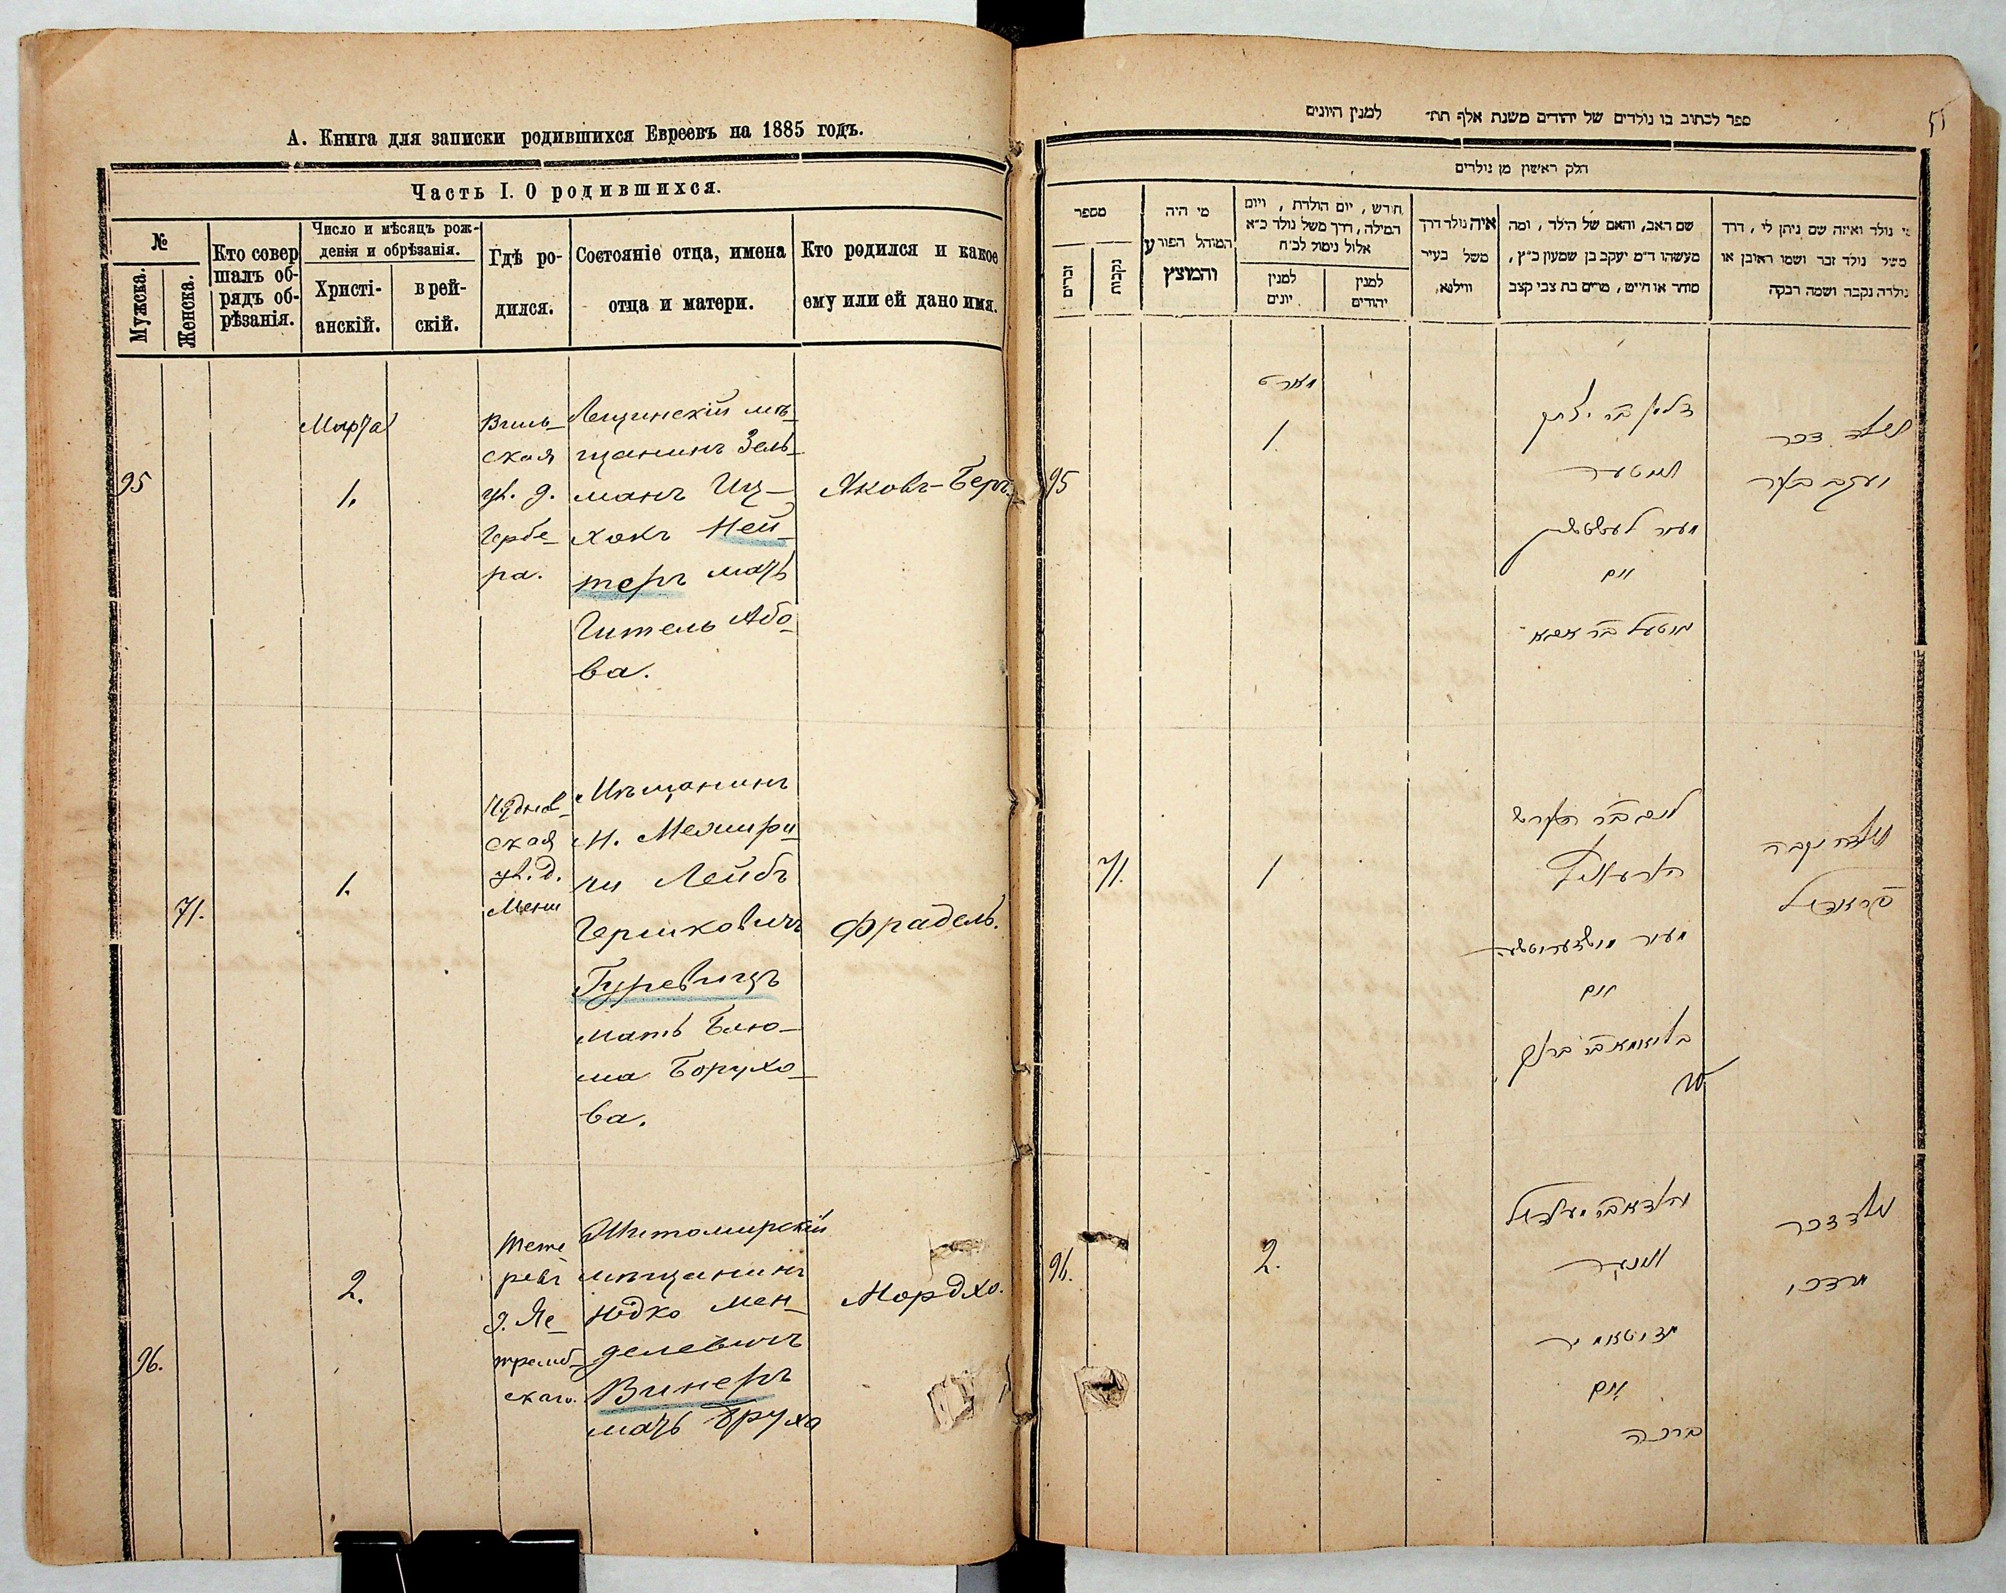 А. Книга для записки родившихся Евреевъ на 1885 годъ.
Часть I. О родившихся.
№
Мужска.
Женска.
Кто совер
шалъ об-
рядъ об-
рѣзанія.
Число и мѣсяцъ рож-
денія и обрѣзанія.
Христі-
анскій.
в рей-
скій.
Гдѣ ро-
дился.
Состояніе отца, имена
отца и матери.
Кто родился и какое
ему или ей дано имя.
95
Марта
1.
Виль-
ская
ул. д.
Гербе-
ра.
мѣ-
щанинъ Зель-
манъ Иц-
хокъ Ней-
теръ мать
Гитель Або-
ва.
Яковъ-Беръ
71.
1.
Чуднов-
ская
ул. д.
Мѣщанинъ
м. Межири-
чи Лейбъ
Гершковичъ
Гуревицъ
мать Блю-
ма Борухо-
ва.
Фрадель.
96.
2.
Тете
ревъ
Житомирскій
мѣщанинъ
Юдко Мен-
делевичъ
Винеръ
мать Бруха
Мордхо.
51
ספר לכתוב בו נולדים של יהודים משנת אלף תת״ למנין היונים
חלק ראשון מן נולדים
מספר
זכרים
נקבות
מי היה
המוהל הפורע
והמוצץ
חודש, יום הולדת, ויום
המילה, דרך משל נולד כ״א
אלול נימול לכ״ח
למנין
יונים
למנין
יהודים
איה נולד דרך
משל בעיר
ווילנא
שם האב, והאם של הילד, ומה
מעשהו ד״מ יעקב בן שמעון כ״ץ,
סוחר או חייט, מרים בת צבי קצב
מי נולד ואיזה שם ניתן לו, דרך
משל נולד זכר ושמו ראובן או
נולדה נקבה ושמה רבקה
95
מארט
1
זלמן בר יצחק
נייטער
ואם
גיטעל בר אבא
נולד זכר
יעקב בער
71.
1
לייב בר הערש
ואם
בליומא בר ברוך
נולדה נקבה
פראדיל
96.
2.
ווינער
ואם
ברכה
נולד זכר
מרדכי